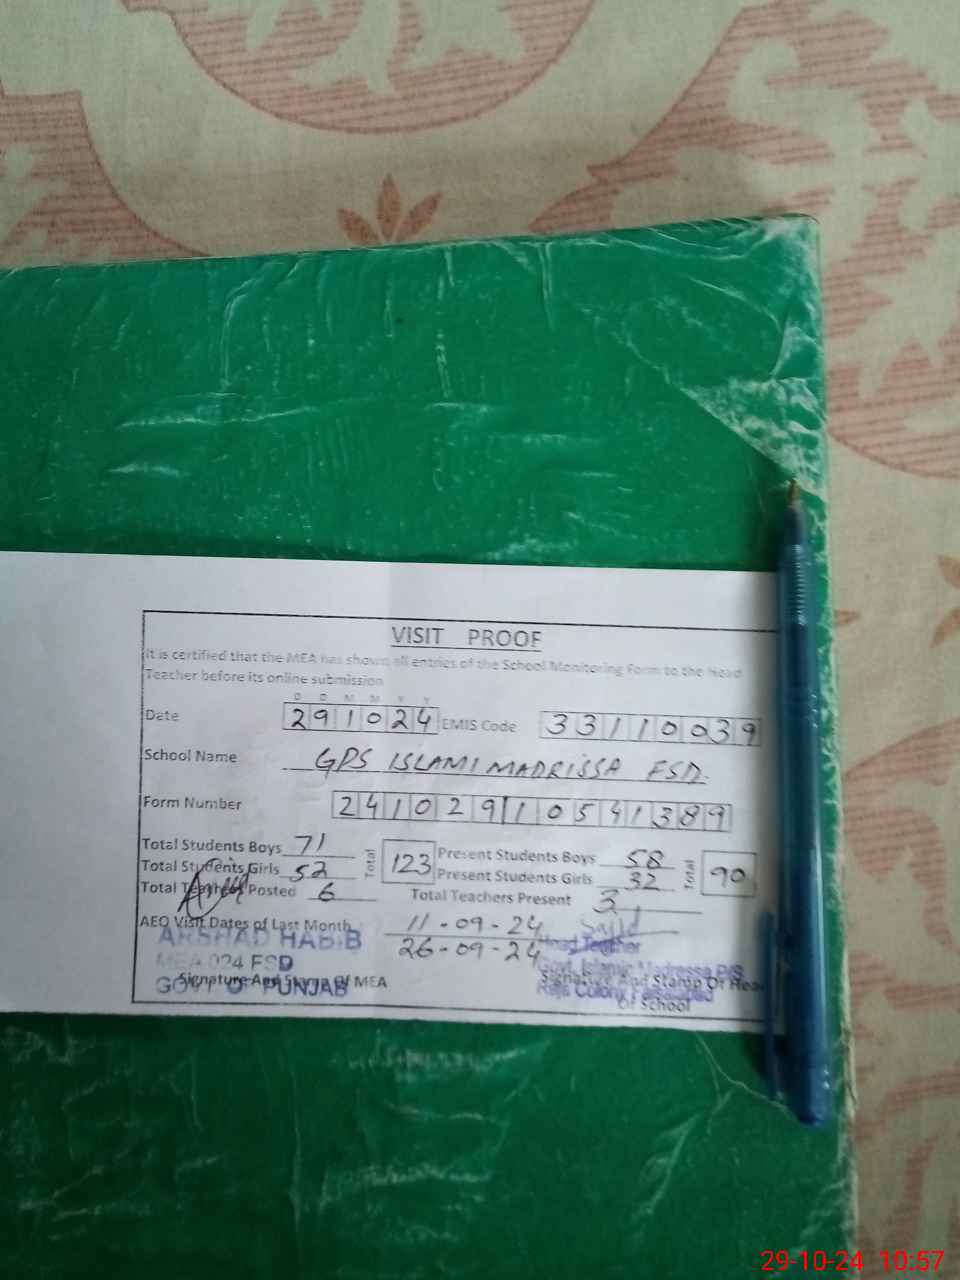 VISIT PROOF
It is certified that the MEA has shown all entries of the School Monitoring Form to the Head
Teacher before its online submission
D D M M Y Y
Date 291024 EMIS Code 33110039
School Name GPS ISLAMI MADRISSA FSD.
Form Number 24102910541389
Total Students Boys 71 Total 123 Present Students Boys 58 Total 90
Total Students Girls 52 Present Students Girls 32
Total Teachers Posted 6 Total Teachers Present 3
AEO Visit Dates of Last Month 11-09-24
26-09-24
ARSHAD HABIB
MEA 024 FSD
GOVT OF PUNJAB
Signature And Stamp Of MEA
Head Teacher
Govt. Islamia Madressa P/S
Raja Colony
Signature And Stamp Of Head
Of School
29-10-24 10:57